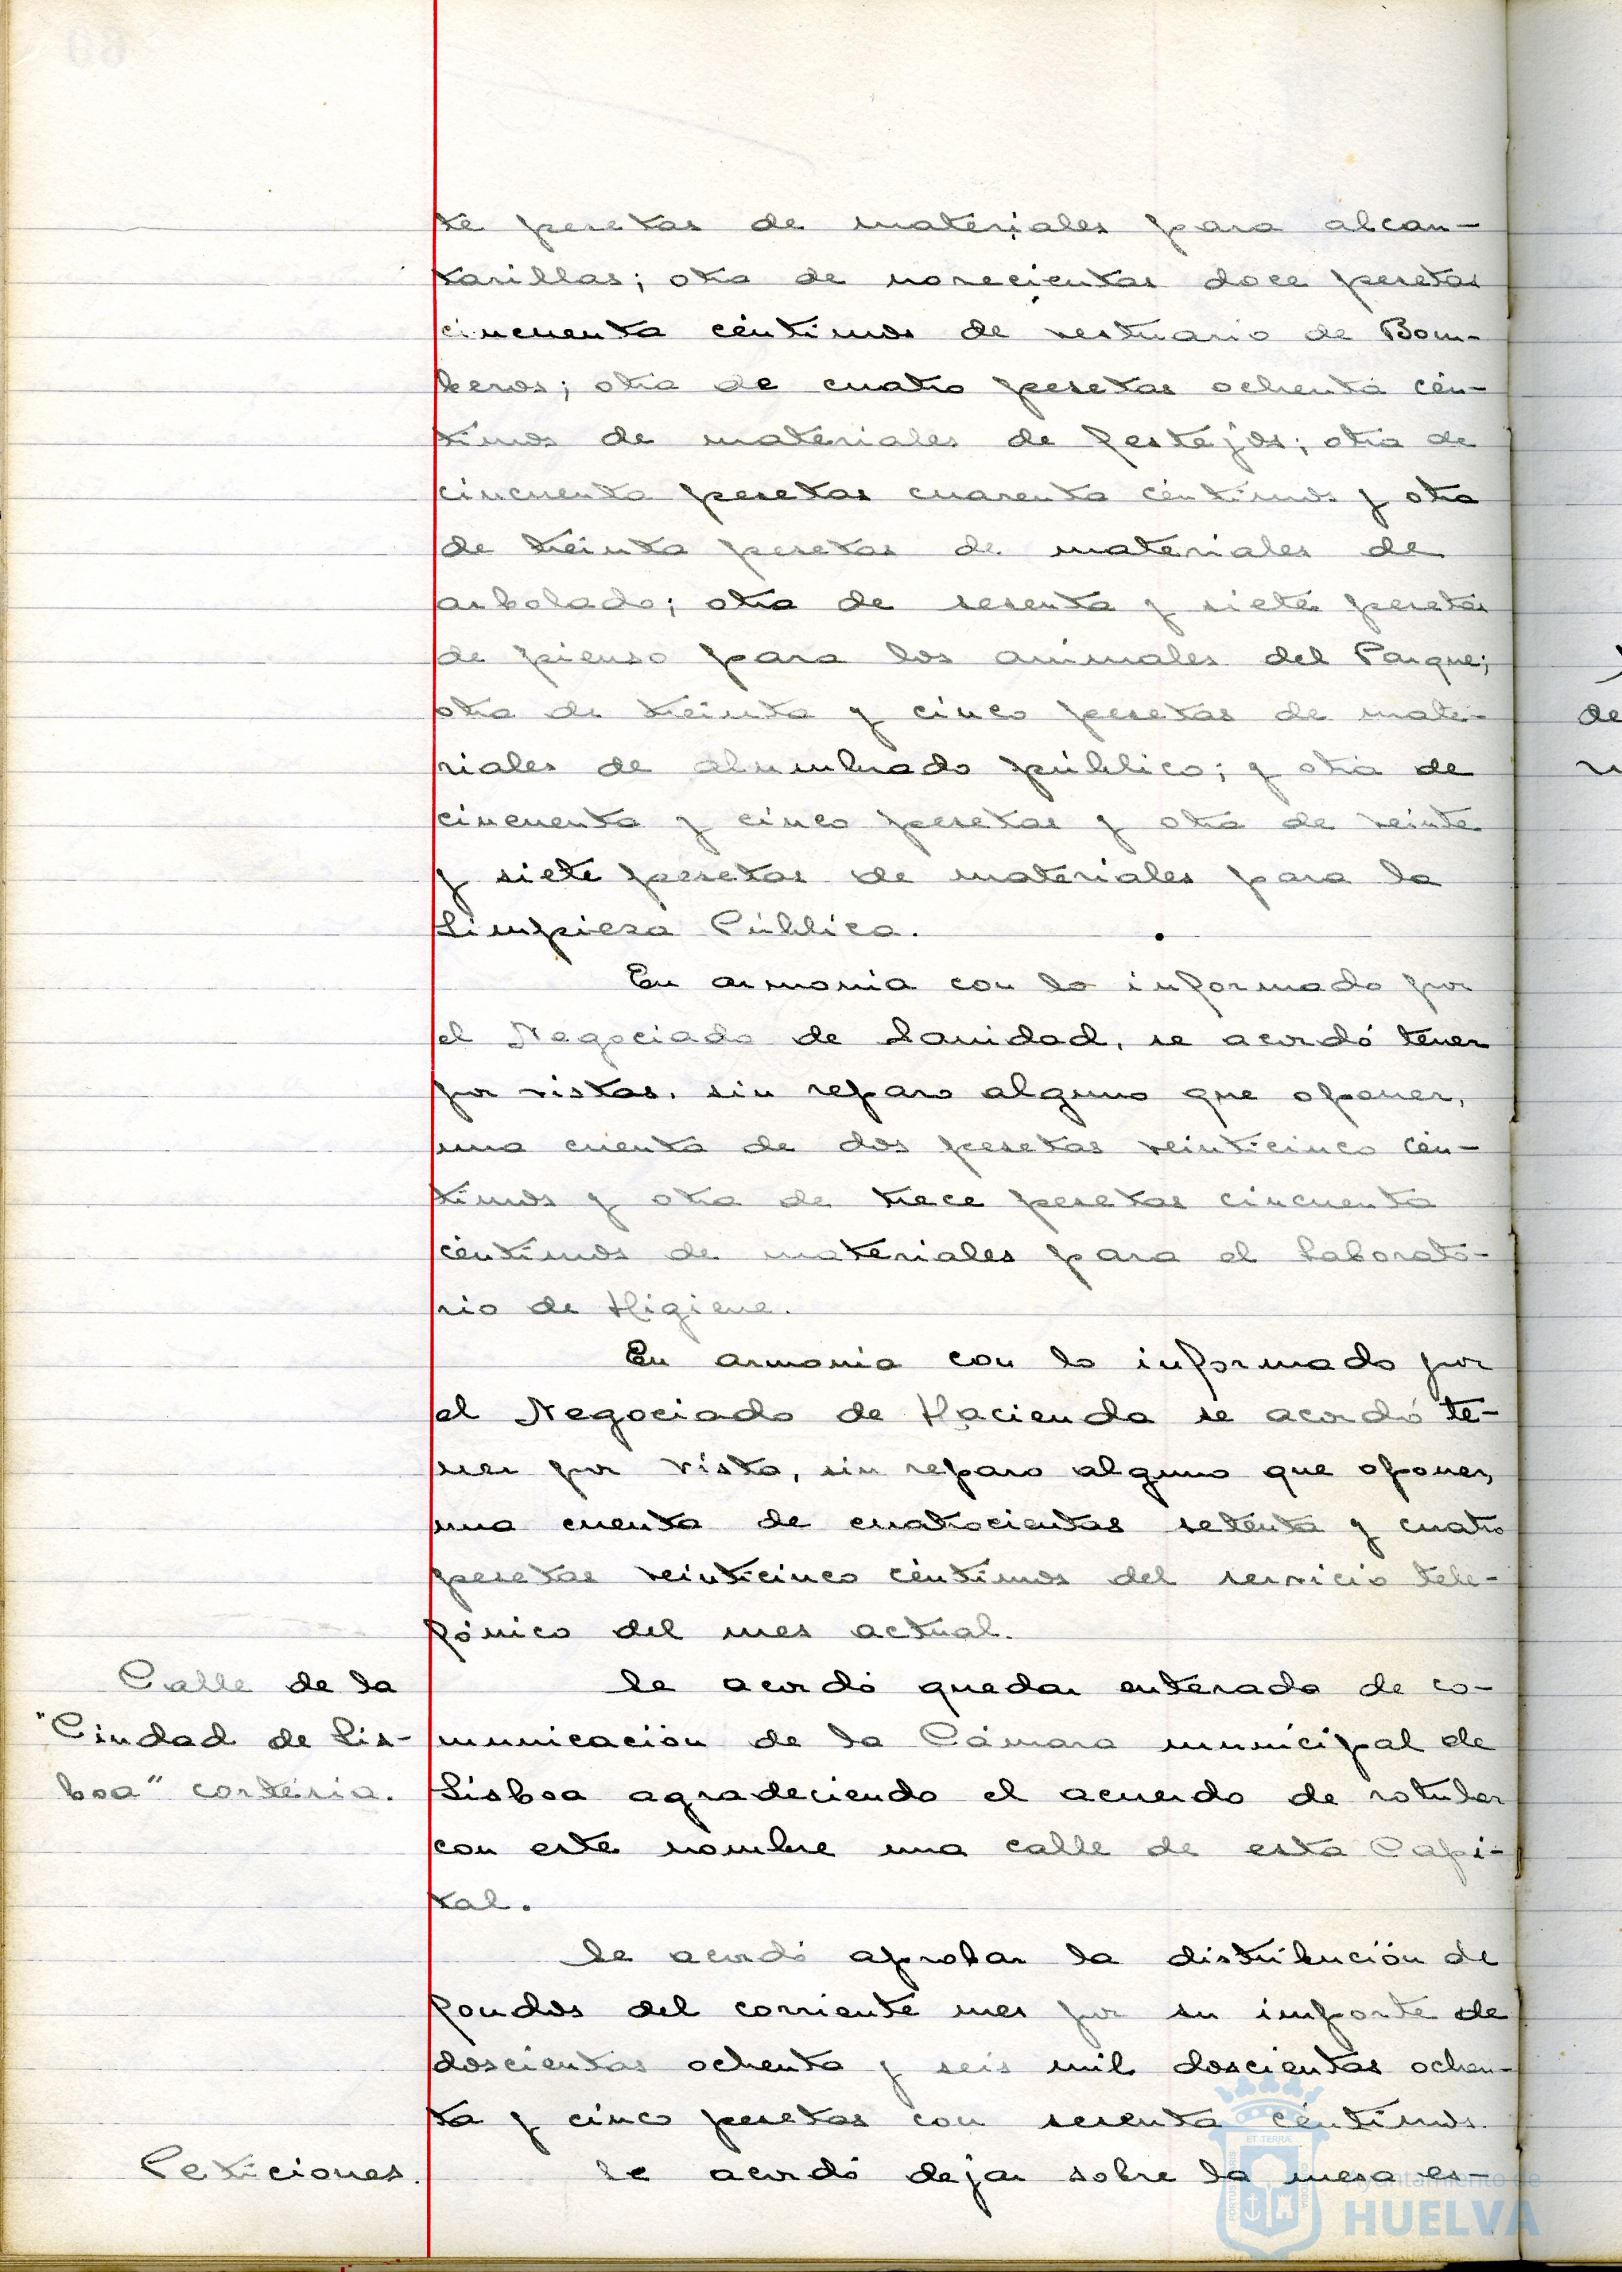 te pesetas de materiales para alcan-
tarillas; otra de novecientas doce pesetas
cincuenta céntimos de vestuario de Bom-
beros; otra de cuatro pesetas ochenta cén-
timos de materiales de festejos; otra de
cincuenta pesetas cuarenta céntimos y otra
de treinta pesetas de materiales de
arbolado; otra de sesenta y siete pesetas
de pienso para los animales del Parque;
otra de treinta y cinco pesetas de mate-
riales de alumbrado público; y otra de
cincuenta y cinco pesetas y otra de veinte
y siete pesetas de materiales para la
Limpieza Pública.
En armonia con lo informado por
el Negociado de Sanidad, se acordó tener
por vistas, sin reparo alguno que oponer,
una cuenta de dos pesetas veinticinco cén-
timos y otra de trece pesetas cincuenta
céntimos de materiales para el Laborato-
rio de Higiene.
En armonia con lo informado por
el Negociado de Hacienda se acordó te-
ner por vista, sin reparo alguno que oponer,
una cuenta de cuatrocientas setenta y cuatro
pesetas veinticinco céntimos del servicio tele-
fónico del mes actual.
Calle de la
"Ciudad de Lis-
boa" cortesia.
Se acordó quedar enterado de co-
municación de la Cámara municipal de
Lisboa agradeciendo el acuerdo de rotular
con este nombre una calle de esta Capi-
tal.
Se acordó aprobar la distribución de
fondos del corriente mes por su importe de
doscientas ochenta y seis mil doscientas ochen-
ta y cinco pesetas con sesenta céntimos.
Peticiones.
Se acordó dejar sobre la mesa es-
de
Ayuntamiento de
HUELVA